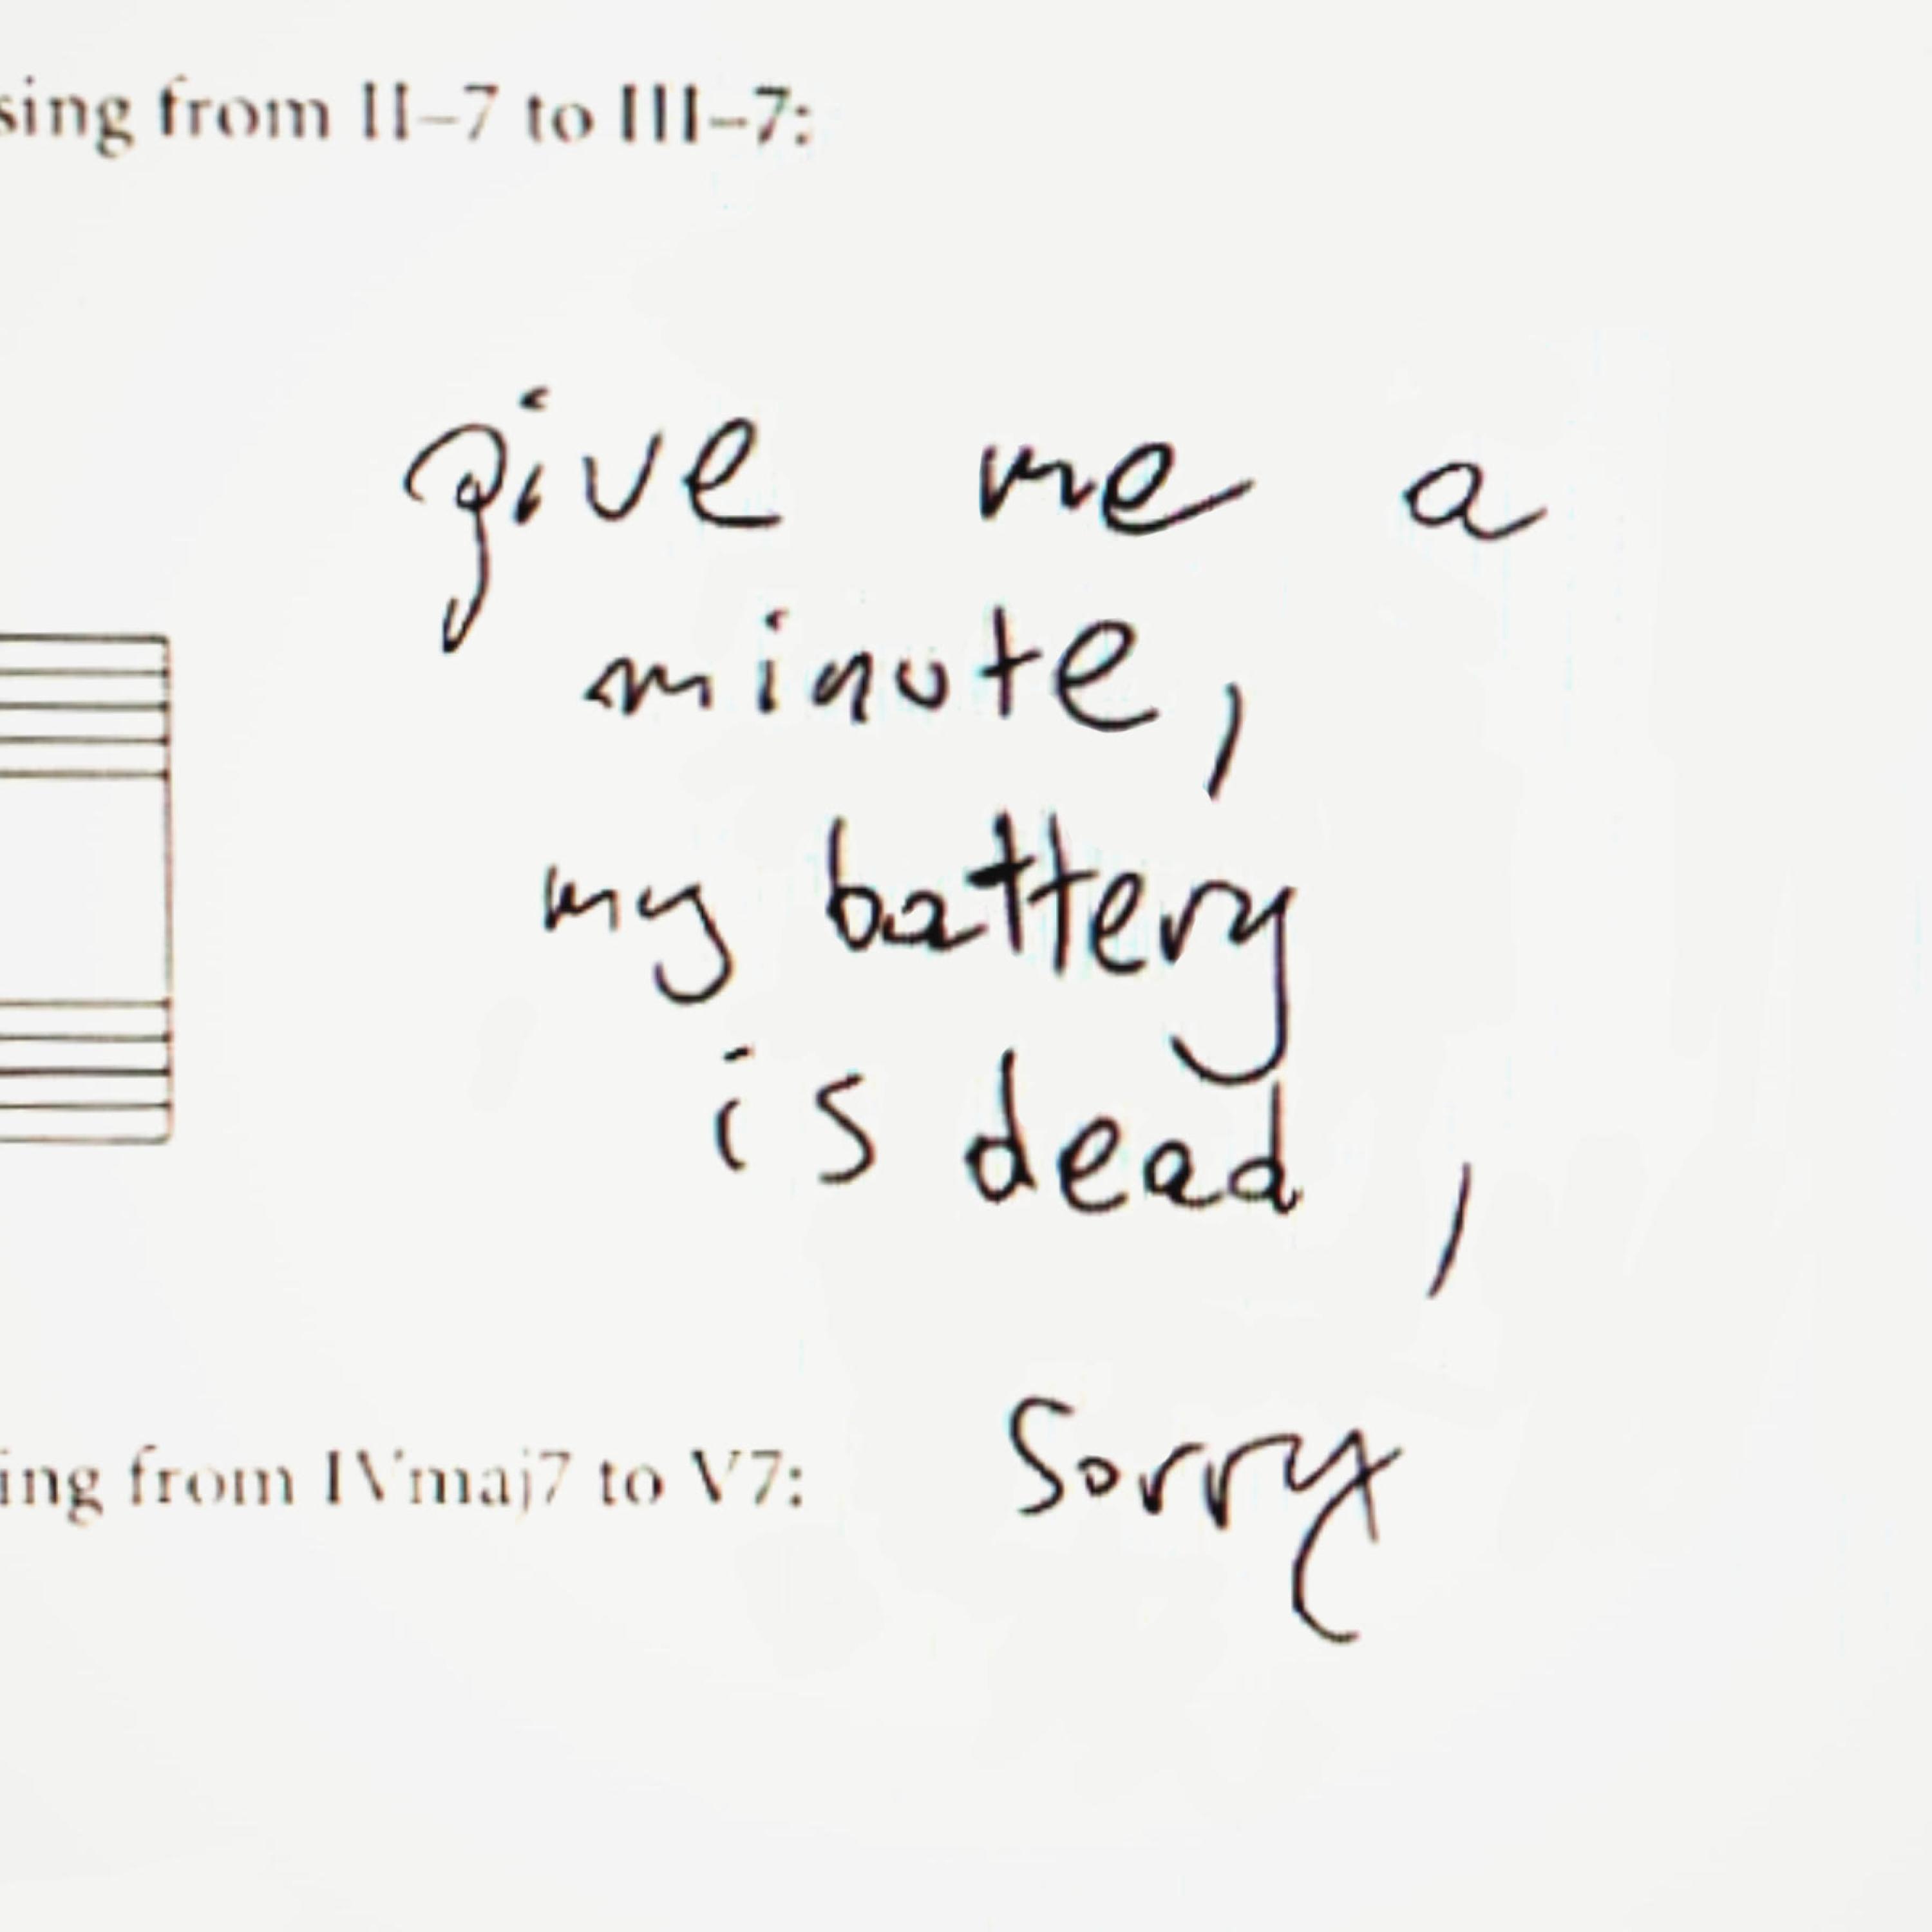 sing from II–7 to III–7:
give me a
minute,
my battery
is dead,
Sorry
ing from IVmaj7 to V7: